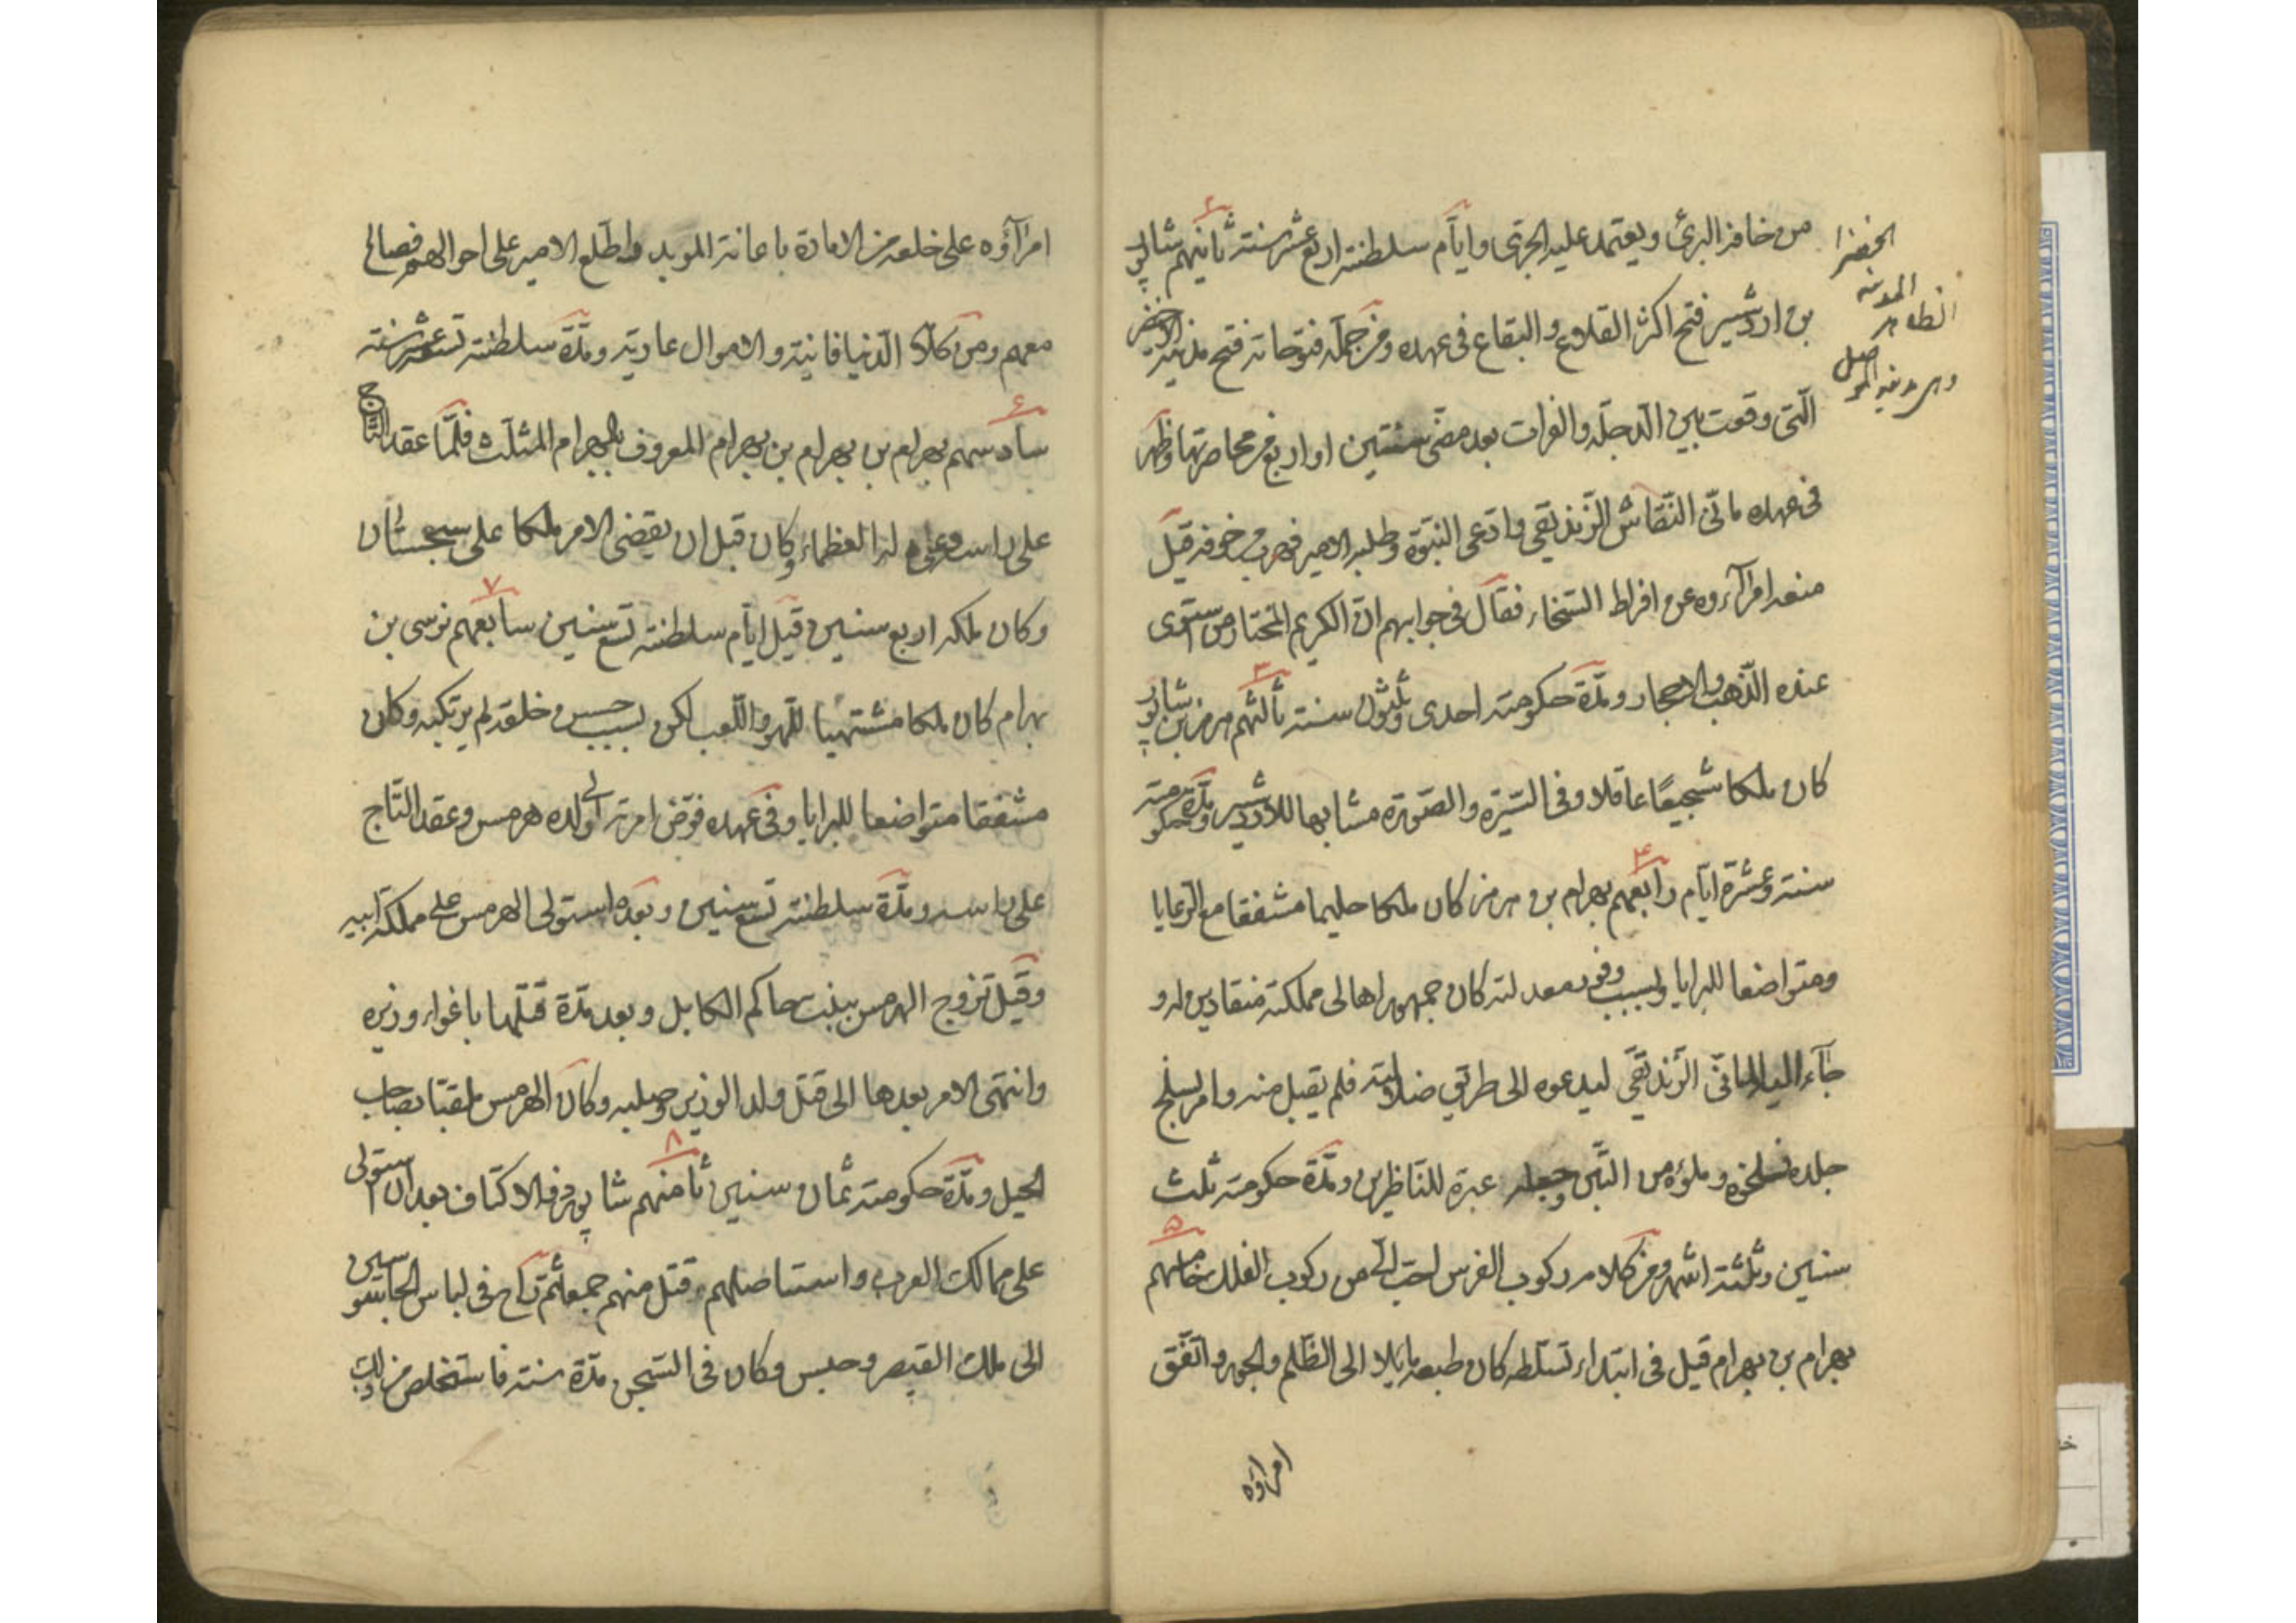 من خافه البرئ ويعتمد عليه الجرئ وايام سلطنته اربع عشر سنة ثانيهم شاپور
بن اردشير فتح اكثر القلاع والبقاع فى عهده ومن جملة فتوحاته فتح مدينة الخضر
الّتى وقعت بين الدجله والفرات بعد مضى سنتين او اربع من محاصرتها وظهر
فى عهده مانى النقاش الزنديقى وادعى النبوة وطلبه الامير فهرب من خوفه قيل
منعه امراآءوه عن افراط السّخاء فقال فى جوابهم انّ الكريم المختار من ستوى
عنده الذهب والاحجار ومدّة حكومته احدى وثلثون سنة ثالثهم هرمز بن شاپور
كان ملكا شجيعًا عاقلا وفى السّيرة والصّورة مشابها للاردشير ومدّة حكومته
سنة وعشرة ايّام رابعهم بهرام بن هرمز كان ملكا حليما مشفقا مع الرعايا
ومتواضعا للبرايا ولسبب وفور معدلته كان جمهور اهالى مملكته منقادين له و
جآء اليه المانىّ الزنديقى ليدعوه الى طريق ضلالته فلم يقبل منه وامر بسلخ
جلده فسلخوه وملؤه من التّبن وجعله عبرة للنّاظرين ومدّة حكومته ثلث
سنين وثلثة اشهر ومن كلامه ركوب الفرس احبّ الىّ من ركوب الفلك خامسهم
بهرام بن بهرام قيل فى ابتداء تسلّطه كان طبعه مايلا الى الظّلم والجور واتّفق
امراؤه
الخضرا
المدينة
امرآؤه على خلعه من الامارة باعانة الموبد واطّلع الامير على احوالهم فصالح
معهم ومن كلامه الدّنيا فانية والاموال عارية ومدّة سلطنته تسعة عشر سنة
سادسهم بهرام بن بهرام بن بهرام المعروف ببهرام المثلّث فلمّا عقد التّاج
على راسه له العظماء وكان قبل ان يقضى الامر ملكا على سجستان
وكان ملكه اربع سنين وقيل ايّام سلطنته تسع سنين سابعهم نرسى بن
بهرام كان ملكا مشتهيا للّهو واللّعب لكن لسبب حسن خلقه لم يرتكبه وكان
مشفقا متواضعا للبرايا وفى عهده فوّض امرته الى ولده هرمس وعقد التّاج
على راسه ومدّة سلطنته تسع سنين وبعده استولى الهرمس على مملكة ابيه
وقيل تزوج الهرمس ببنت حاكم الكابل وبعد مدّة قتلها باغواء وزيره
وانتهى الامر بعدها الى قتل ولد الوزير وصلبه وكان الهرمس ملقبّا بصاحب
الجبل ومدّة حكومته ثمان سنين ثامنهم شاپور ذو الاكتاف بعد ان استولى
على ممالك العرب واستاصلهم وقتل منهم جمعا ثمّ راح فى لباس الجاسوسين
الى ملك القيصر وحبس وكان فى السّجن مدّة سنة فاستخلص من ذلك